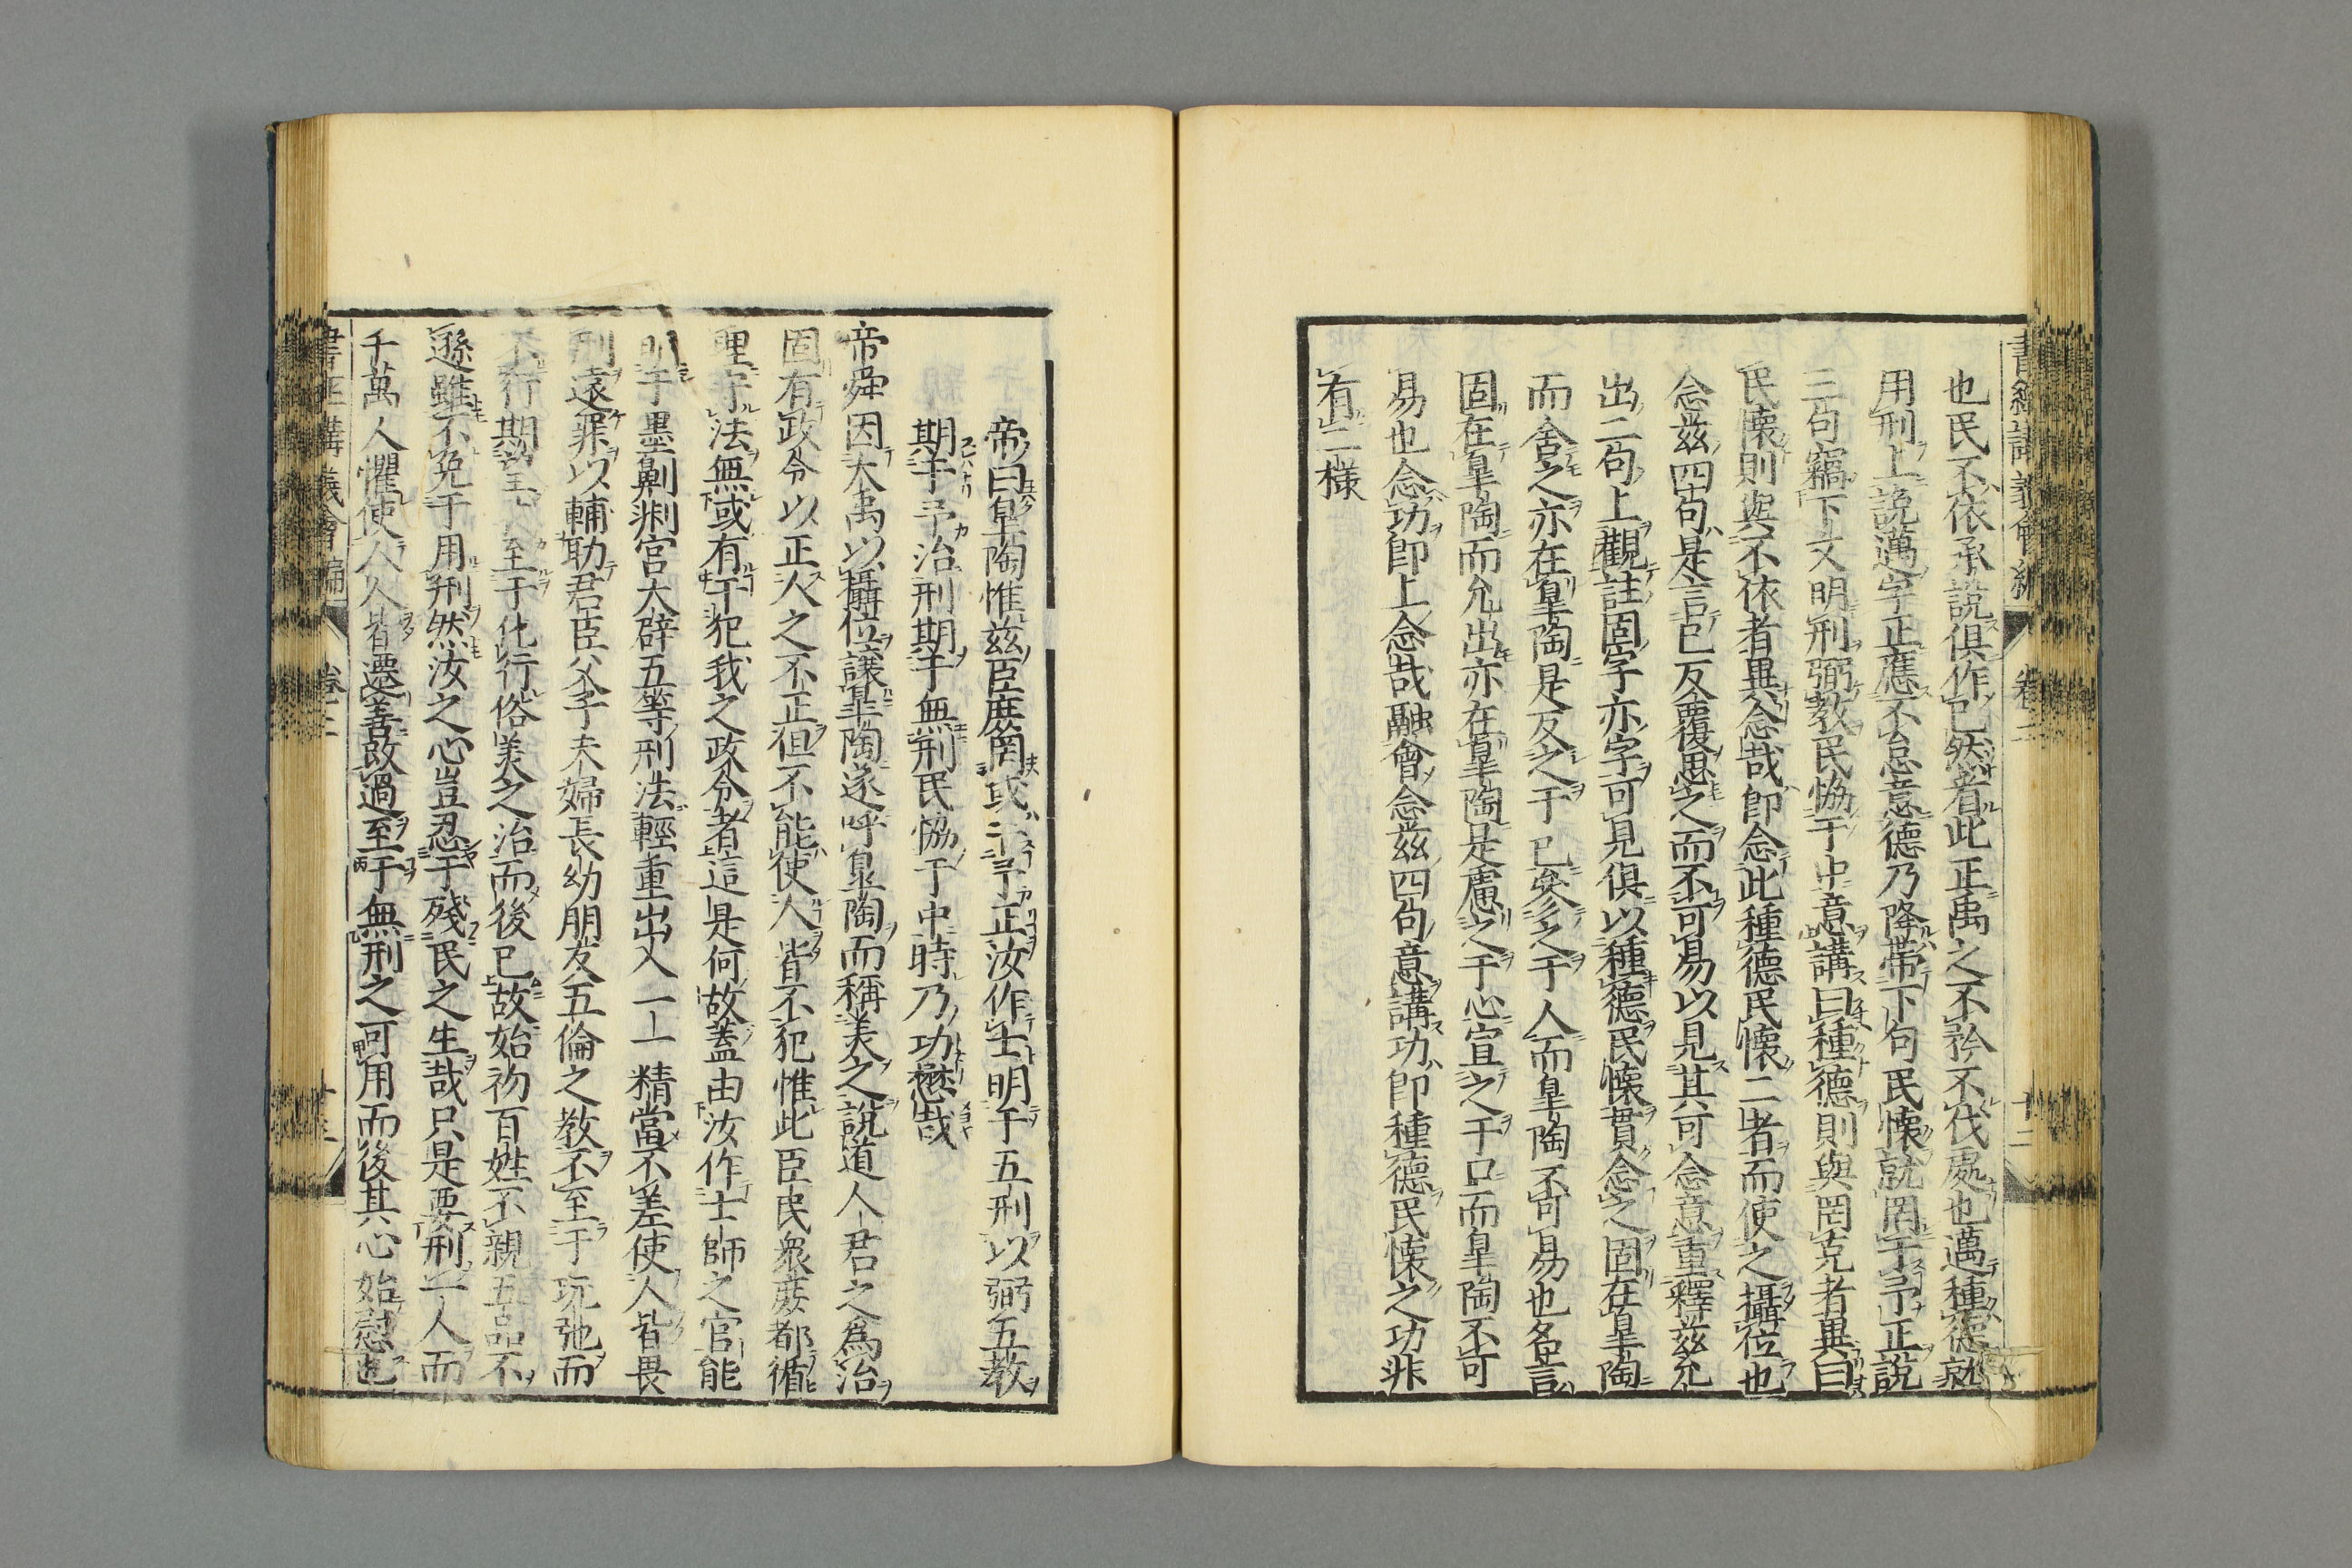 書經講義會編 卷二 十二
也民不依承說俱作已然着此正禹之不矜不伐處也邁種德就
用刑上說邁字正應不怠意德乃降帶下句民懷就罔干予正說
三句竊下文明刑弼敎民協于中意講曰種德則與罔克者異曰
民懷則與不依者異念哉卽念此種德民懷二者而使之攝位也
念玆四句是言已反覆思之而不可易以見其可念意重釋玆允
出二句上觀註固字亦字可見俱以種德民懷貫念之固在皐陶
而舍之亦在皐陶是反之于已矣名言
固在皐陶而允出亦在皐陶是慮之于心宣之于口而皐陶不可
易也念功卽上念哉融會念玆四句意講功卽種德民懷之功非
有二樣
帝曰皐陶惟玆臣庶罔或干予正汝作士明于五刑以弼五敎
期于予治刑期于無刑民恊于中時乃功懋哉
帝舜因大禹以攝位讓皐陶遂呼皐陶而稱美之說道人君之爲治
固有政令以正人之不正但不能使人皆不犯惟此臣民衆庶都循
理守法無或有干犯我之政令者這是何故蓋由汝作士師之官能
明于墨劓剕宮大辟五等刑法輕重出入一一精當不差使人皆畏
刑遠罪以輔助君臣父子夫婦長幼朋友五倫之敎不至于玩弛而
不行期至于化行俗美之治而後已故始初百姓不親五品不
遜雖不免于用刑然汝之心豈忍于殘民之生哉只是要刑一人而
千萬人懼使人人皆遷善改過至于無刑之可用而後其心始慰也
書經講義會編 卷二 十三